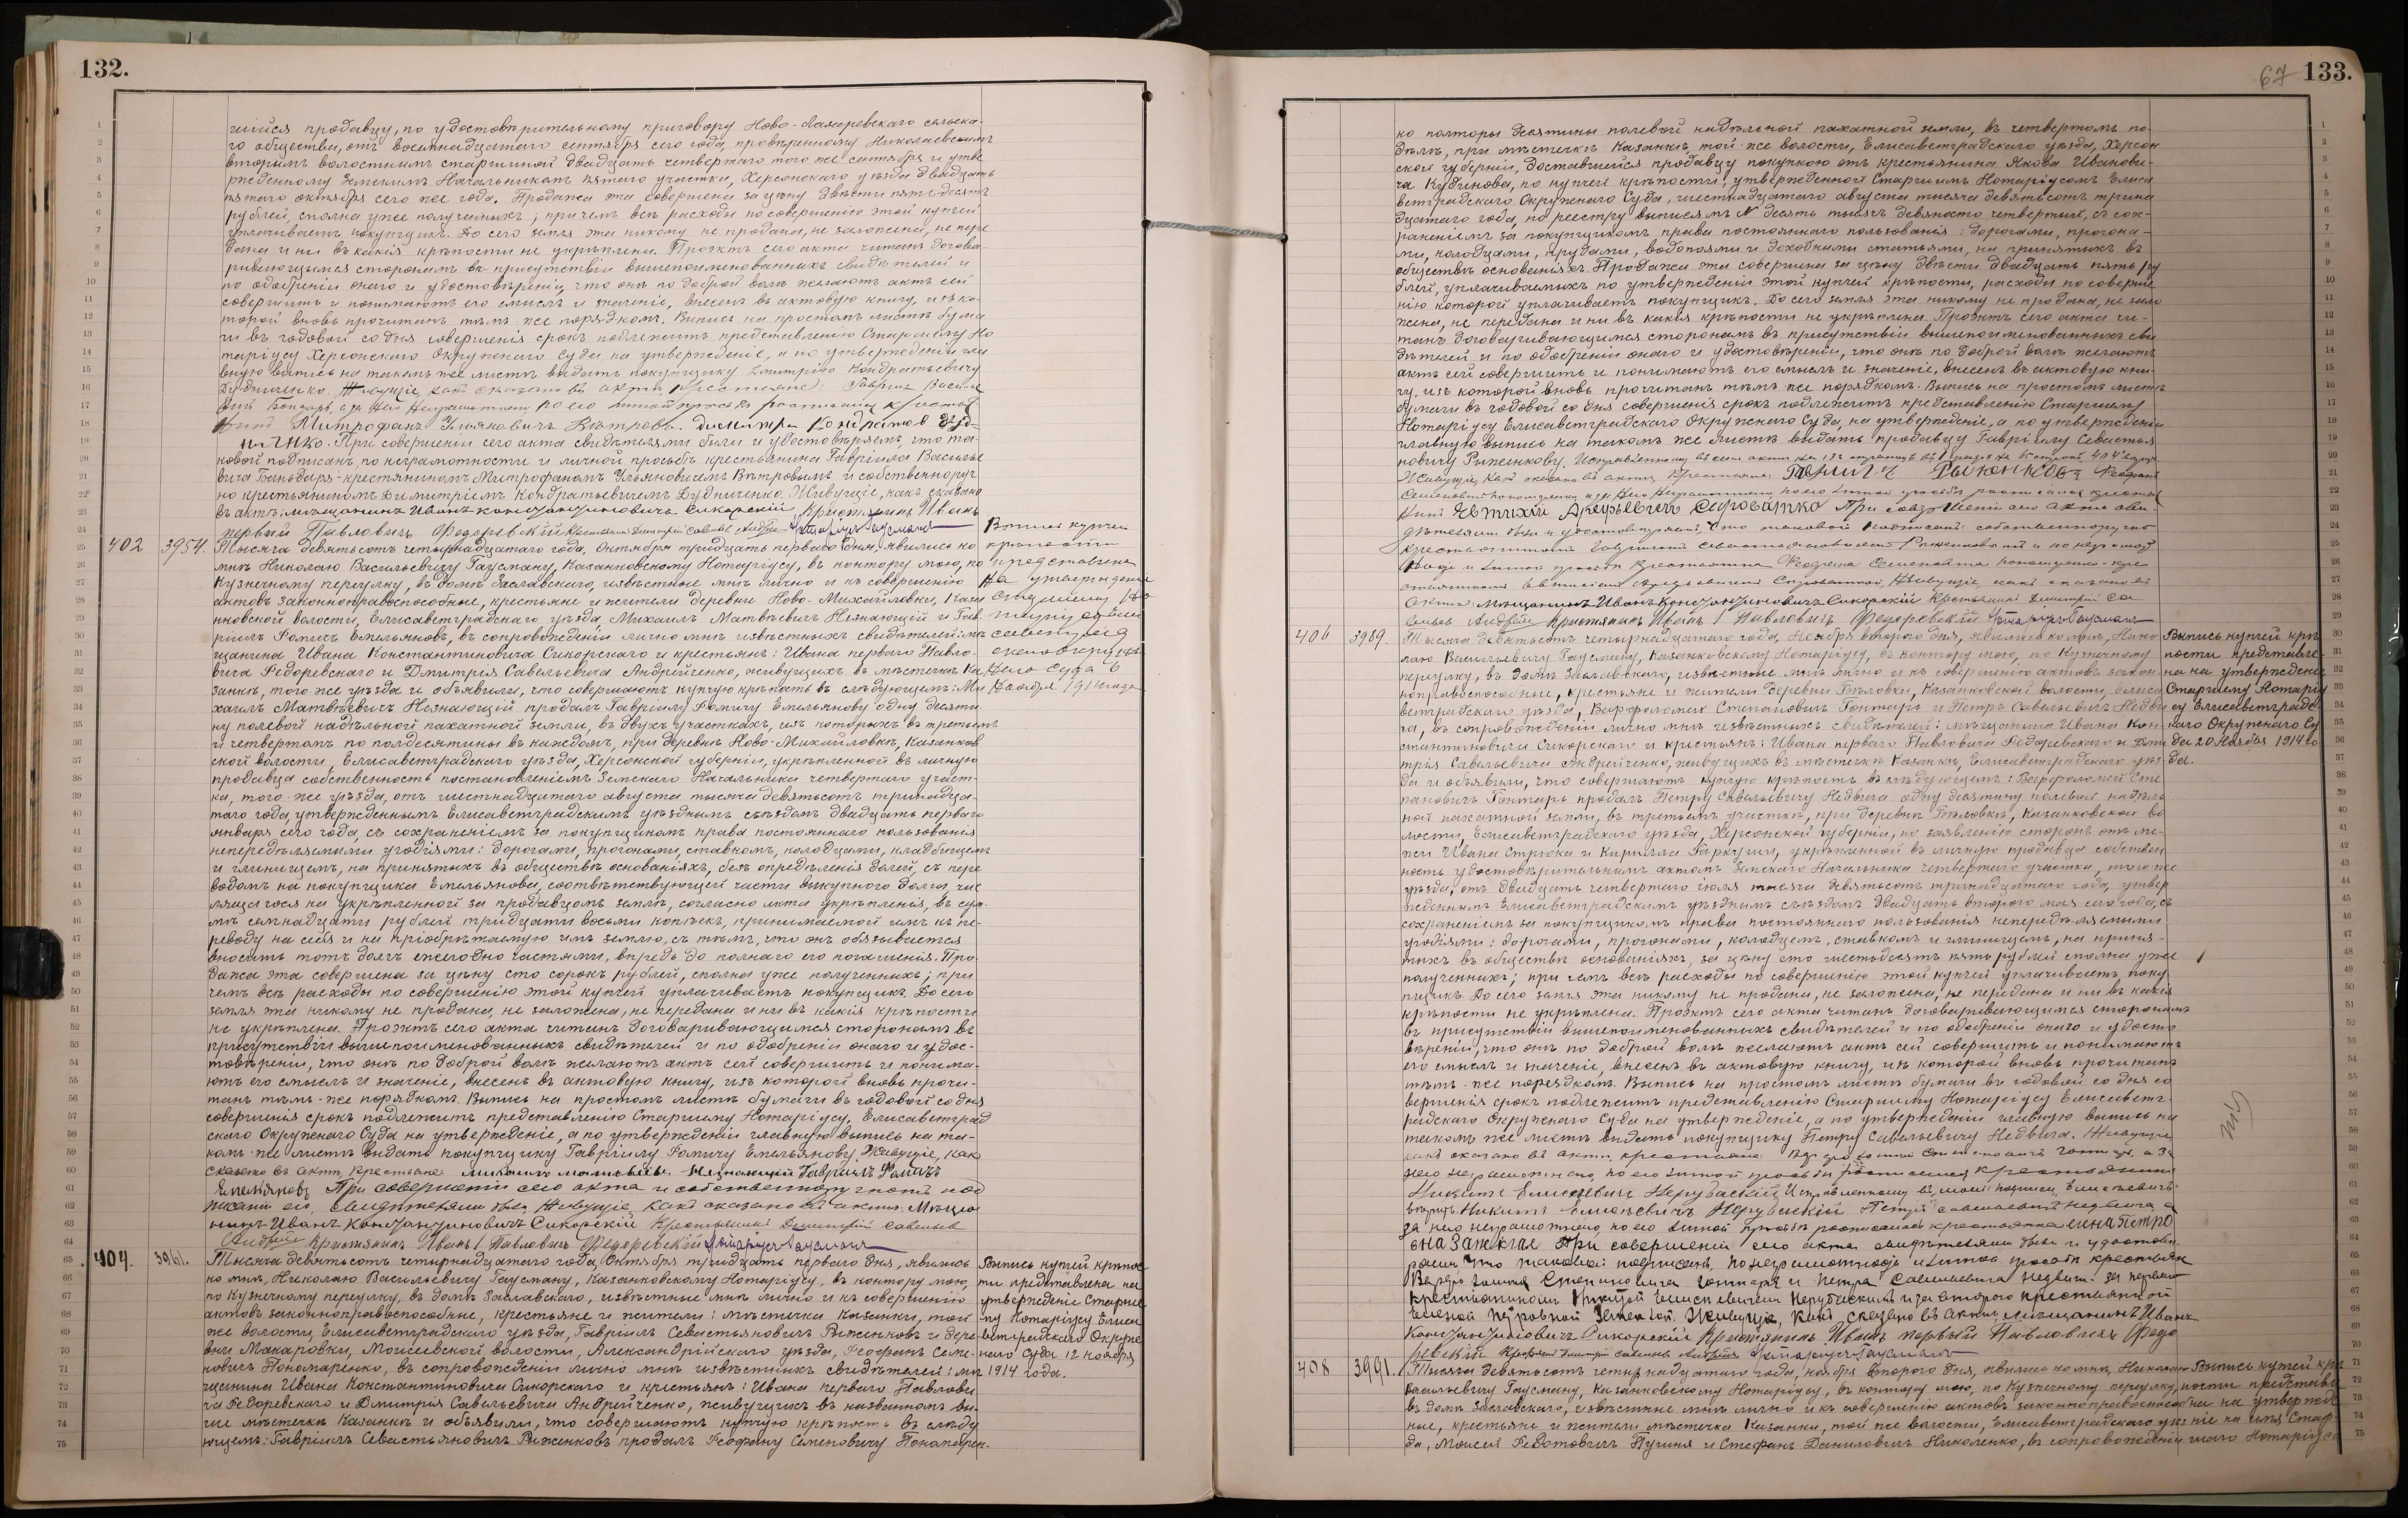 132.
шійся продавцу, по удостовѣрительному приговору Ново-Лазаревскаго сельска-
го общества, отъ восемнадцатаго сентября сего года, провѣренному Николаевскимъ
вторымъ волостнымъ старшиной двадцать четвертаго того же сентября и утве
ржденному Земскимъ Начальникомъ пятаго участка, Херсонскаго уѣзда двадцать
пятаго октября сего же года. Продажа эта совершена за цѣну двѣсти пятьдесятъ
рублей, сполна уже полученныхъ; при чемъ всѣ расходы по совершенію этой купчей
уплачиваетъ покупщикъ. До сего земля эта никому не продана, не заложена, не пере
дана и ни въ какія крѣпости не укрѣплена. Проэктъ сего акта читанъ догова
ривающимся сторонамъ въ присутствіи вышепоименованныхъ свидѣтелей и
по одобреніи онаго и удостовѣреніи, что онѣ по доброй волѣ желаютъ актъ сей
совершить и понимаютъ его смыслъ и значеніе, внесенъ въ актовую книгу, изъ ко-
торой вновь прочитанъ тѣмъ-же порядкомъ. Выпись на простомъ листѣ бума
ги въ годовой со дня совершенія срокъ подлежитъ представленію Старшему Но
таріусу Херсонскаго Окружнаго Суда на утвержденіе, а по утвержденіи гла
вную выпись на такомъ же листѣ выдать покупщику Дмитрію Кондратьевичу
Дудниченко. Живущіе, какъ сказано въ актѣ, крестьяне: Гавріилъ Василье
вичъ Бондарь, а за него неграмотнаго по его личной просьбѣ росписался крестья
нинъ Митрофанъ Ульяновичъ Вѣтровъ. Димитрій Кондратов Дуд-
ниченко. При совершеніи сего акта свидѣтелями были и удостовѣряемъ, что та-
ковой подписанъ, по неграмотности и личной просьбѣ крестьянина Гавріила Василье
вича Бондаря-крестьяниномъ Митрофаномъ Ульяновичемъ Вѣтровымъ и собственноруч
но крестьяниномъ Димитріемъ Кондратьевичемъ Дудниченко. Живущіе, какъ сказано
въ актѣ: мѣщанинъ Иванъ Константиновичъ Сикорскій Крестьянинъ Иванъ
первый Павловичъ Федоревскій Крестьянинъ Димитрій Савельев Андрей Нотаріусъ Гаусманъ
402 3954. Тысяча девятьсотъ четырнадцатаго года, Октября тридцать перваго дня, явились ко
мнѣ Николаю Васильевичу Гаусману, Казанковскому Нотаріусу, въ контору мою, по
Кузнечному переулку, въ домѣ Заславскаго, извѣстные мнѣ лично и къ совершенію
актовъ законноправоспособные, крестьяне и жители деревни Ново-Михайловки, Каза
нковской волости, Елисаветградскаго уѣзда, Михаилъ Матвѣевичъ Незнающій и Гав-
ріилъ Фомичъ Емельяновъ, въ сопровожденіи лично мнѣ извѣстныхъ свидѣтелей: мѣ
щанина Ивана Константиновича Сикорскаго и крестьянъ: Ивана перваго Павло-
вича Федоревскаго и Дмитрія Савельевича Андрейченко, живущихъ въ мѣстечкѣ Ка
занкѣ, того же уѣзда и объявили, что совершаютъ купчую крѣпость въ слѣдующемъ: Ми
хаилъ Матвѣевичъ Незнающій продалъ Гавріилу Фомичу Емельянову одну десяти-
ну полевой надѣльной пахатной земли, въ двухъ участкахъ, изъ которыхъ въ третьемъ
и четвертомъ по полдесятины въ каждомъ, при деревнѣ Ново-Михайловкѣ, Казанков
ской волости, Елисаветградскаго уѣзда, Херсонской губерніи, укрѣпленной въ личную
продавца собственность постановленіемъ Земскаго Начальника четвертаго участ-
ка, того-же уѣзда, отъ шестнадцатаго августа тысяча девятьсотъ тринадца-
таго года, утвержденнымъ Елисаветградскимъ уѣзднымъ съѣздомъ двадцать перваго
января сего года, съ сохраненіемъ за покупщикомъ права постояннаго пользованія
непередѣляемыми угодіями: дорогами, прогонами, ставкомъ, колодцами, кладбищемъ
и глинищемъ, на принятыхъ въ обществѣ основаніяхъ, безъ опредѣленія долей, съ пере
водомъ на покупщика Емельянова, соотвѣтствующей части выкупного долга, чис
лящагося на укрѣпленной за продавцомъ землѣ, согласно акта укрѣпленія, въ сум-
мѣ семнадцати рублей тридцати восьми копѣекъ, принимаемой имъ къ пе-
реводу на себя и на пріобрѣтаемую имъ землю, съ тѣмъ, что онъ обязывается
вносить тотъ долгъ ежегодно частями, впредь до полнаго его погашенія. Про-
дажа эта совершена за цѣну сто сорокъ рублей, сполна уже полученныхъ; при
чемъ всѣ расходы по совершенію этой купчей уплачиваетъ покупщикъ. До сего
земля эта никому не продана, не заложена, не передана и ни въ какія крѣпости
не укрѣплена. Проэктъ сего акта читанъ договаривающимся сторонамъ въ
присутствіи вышепоименованныхъ свидѣтелей и по одобреніи онаго и удос-
товѣреніи, что онѣ по доброй волѣ желаютъ актъ сей совершить и понима-
ютъ его смыслъ и значеніе, внесенъ въ актовую книгу, изъ которой вновь прочи-
танъ тѣмъ-же порядкомъ. Выпись на простомъ листѣ бумаги въ годовой со дня
совершенія срокъ подлежитъ представленію Старшему Нотаріусу, Елисаветград
скаго Окружнаго Суда на утвержденіе, а по утвержденіи главную выпись на та-
комъ-же листѣ выдать покупщику Гавріилу Фомичу Емельянову. Живущіе, какъ
сказано въ актѣ, крестьяне: Незнающій Гавріилъ Фомичъ
Емельяновъ При совершеніи сего акта и собственноручномъ под
писаніи его, свидѣтелями были, живущіе, какъ сказано въ актѣ: Мѣща
нинъ Иванъ Константиновичъ Сикорскій Крестьянинъ Димитрій Савельев
Андрей Крестьянинъ Иванъ 1 Павловичъ Федоревскій Нотаріусъ Гаусманъ
Выпись купчей
крѣпости
представлена
на утвержденіе
Старшему Но
таріусу Елиса
ветград
скаго Окруж
наго Суда 6
Ноября 1914 года
404. 3961. Тысяча девятьсотъ четырнадцатаго года, Октября тридцать перваго дня, явились
ко мнѣ, Николаю Васильевичу Гаусману, Казанковскому Нотаріусу, въ контору мою,
по Кузнечному переулку, въ домѣ Заславскаго, извѣстные мнѣ лично и къ совершенію
актовъ законноправоспособные, крестьяне и жители: мѣстечка Казанки, той
же волости, Елисаветградскаго уѣзда, Гавріилъ Севастьяновичъ Рыженковъ и дере
вни Макаровки, Моисеевской волости, Александрійскаго уѣзда, Феофанъ Семе-
новичъ Пономаренко, въ сопровожденіи лично мнѣ извѣстныхъ свидѣтелей: мѣ
щанина Ивана Константиновича Сикорскаго и крестьянъ: Ивана перваго Павлови
ча Федоревскаго и Дмитрія Савельевича Андрейченко, живущихъ въ названномъ вы-
ше мѣстечкѣ Казанкѣ и объявили, что совершаютъ купчую крѣпость въ слѣду
ющемъ: Гавріилъ Севастьяновичъ Рыженковъ продалъ Феофану Семеновичу Пономарен-
Выпись купчей крѣпос
ти представлена на
утвержденіе Старше
му Нотаріусу Елиса
ветградскаго Окруж
наго Суда 12 ноября
1914 года.
67 133.
ко полторы десятины полевой надѣльной пахатной земли, въ четвертомъ по-
лѣ, при мѣстечкѣ Казанкѣ, той-же волости, Елисаветградскаго уѣзда, Херсон
ской губерніи, доставшейся продавцу покупкою отъ крестьянина Якова Иванови-
ча Кудинова, по купчей крѣпости, утвержденной Старшимъ Нотаріусомъ Елиса
ветградскаго Окружнаго Суда, шестнадцатаго августа тысяча девятьсотъ трина
дцатаго года, по реестру выписямъ № десять тысячъ девяносто четвертый, съ сох-
раненіемъ за покупщикомъ права постояннаго пользованія: дорогами, прогона-
ми, колодцами, прудами, водопоями и доходными статьями, на принятыхъ въ
обществѣ основаніяхъ. Продажа эта совершена за цѣну двѣсти двадцать пять ру
блей, уплачиваемыхъ по утвержденіи этой купчей крѣпости, расходы по соверше
нію которой уплачиваетъ покупщикъ. До сего земля эта никому не продана, не зало
жена, не передана и ни въ какія крѣпости не укрѣплена. Проэктъ сего акта чи-
танъ договаривающимся сторонамъ въ присутствіи вышепоименованныхъ сви
дѣтелей и по одобреніи онаго и удостовѣреніи, что онѣ по доброй волѣ желаютъ
актъ сей совершить и понимаютъ его смыслъ и значеніе, внесенъ въ актовую кни-
гу, изъ которой вновь прочитанъ тѣмъ же порядкомъ. Выпись на простомъ листѣ
бумаги въ годовой со дня совершенія срокъ подлежитъ представленію Старшему
Нотаріусу Елисаветградскаго Окружнаго Суда, на утвержденіе, а по утвержденіи
главную выпись на такомъ же листѣ выдать продавцу Гавріилу Севастья
новичу Рыженкову. Исправленному въ семъ актѣ на 132 страницѣ
Живущіе, какъ сказано въ актѣ, Крестьяне: Рыженковъ Феофанъ
Семеновичъ Пономаренко, а за него неграмотнаго, по его личной просьбѣ росписался крестья
нинъ Евтихій Арефьевич Сыроватко При совершеніи сего акта сви-
дѣтелями были и удостовѣряемъ, что таковой подписанъ: собственноручно
крестьяниномъ Гавріиломъ Севастьяновичемъ Рыженковымъ и по неграмот
ности и личной просьбѣ крестьянина Феофана Семеновича Пономаренко-кре
стьяниномъ Евтихіемъ Арефьевичемъ Сыроваткой. Живущіе, какъ сказано въ
актѣ: Мѣщанинъ Иванъ Константиновичъ Сикорскій Крестьянинъ Димитрій Са
вельев Андрей Крестьянинъ Иванъ 1 Павловичъ Федоревскій Нотаріусъ Гаусманъ
406 3989. Тысяча девятьсотъ четырнадцатаго года, Ноября второго дня, явились ко мнѣ, Нико
лаю Васильевичу Гаусману, Казанковскому Нотаріусу, въ контору мою, по Кузнечному
переулку, въ домѣ Заславскаго, извѣстные мнѣ лично и къ совершенію актовъ закон
ноправоспособные, крестьяне и жители деревни Бѣловки, Казанковской волости, Елиса
ветградскаго уѣзда, Варфоломей Степановичъ Гонтарь и Петръ Савельевичъ Недви
га, въ сопровожденіи лично мнѣ извѣстныхъ свидѣтелей: мѣщанина Ивана Кон-
стантиновича Сикорскаго и крестьянъ: Ивана перваго Павловича Федоревскаго и Дми
трія Савельевича Андрейченко, живущихъ въ мѣстечкѣ Казанкѣ, Елисаветградскаго уѣз-
да и объявили, что совершаютъ купчую крѣпость въ слѣдующемъ: Варфоломей Сте
пановичъ Гонтарь продалъ Петру Савельевичу Недвига одну десятину полевой надѣль
ной пахатной земли, въ третьемъ участкѣ, при деревнѣ Бѣловкѣ, Казанковской во
лости, Елисаветградскаго уѣзда, Херсонской губерніи, по заявленію сторонъ отъ ме-
жи Ивана Стрюка и Кирилла Гаркуши, укрѣпленной въ личную продавца собствен
ность удостовѣрительнымъ актомъ Земскаго Начальника четвертаго участка, того же
уѣзда, отъ двадцать четвертаго іюля тысяча девятьсотъ тринадцатаго года, утвер
жденнымъ Елисаветградскимъ уѣзднымъ съѣздомъ двадцать второго мая сего года, съ
сохраненіемъ за покупщикомъ права постояннаго пользованія непередѣляемыми
угодіями: дорогами, прогонами, колодцемъ, ставкомъ и глинищемъ, на приня-
тыхъ въ обществѣ основаніяхъ, за цѣну сто шестьдесятъ пять рублей сполна уже
полученныхъ; при чемъ всѣ расходы по совершенію этой купчей уплачиваетъ поку-
пщикъ. До сего земля эта никому не продана, не заложена, не передана и ни въ какія
крѣпости не укрѣплена. Проэктъ сего акта читанъ договаривающимся сторонамъ
въ присутствіи вышепоименованныхъ свидѣтелей и по одобреніи онаго и удосто
вѣреніи, что онѣ по доброй волѣ желаютъ актъ сей совершить и понимаютъ
его смыслъ и значеніе, внесенъ въ актовую книгу, изъ которой вновь прочитанъ
тѣмъ-же порядкомъ. Выпись на простомъ листѣ бумаги въ годовой со дня со
вершенія срокъ подлежитъ представленію Старшему Нотаріусу Елисавет-
градскаго Окружнаго Суда на утвержденіе, а по утвержденіи главную выпись на
такомъ же листѣ выдать покупщику Петру Савельевичу Недвига. Живущіе
какъ сказано въ актѣ, крестьяне: Варфоломей Степановичъ Гонтарь, а за
него неграмотнаго, по его личной просьбѣ росписался крестьянинъ
Никита Елисеевич Нерубаскій Исправленному въ моей подписи „Елисеевичъ"
вѣрить. Никита Елисеевич Нерубаскій Петръ Савельевичъ Недвига а
за него неграмотнаго, по его личной просьбѣ росписалась крестьянка Елена Петро
вна Зажигая При совершеніи сего акта свидѣтелями были и удостовѣ
ряемъ, что таковой подписанъ, по неграмотности и личной просьбѣ крестьянъ
Варфоломея Степановича Гонтаря и Петра Савельевича Недвиги: за перваго
крестьяниномъ Никитой Елисеевичемъ Нерубаскимъ и за второго крестьянкой
Еленой Петровной Зажигой. Живущіе, какъ сказано въ актѣ: мѣщанинъ Иванъ
Константиновичъ Сикорскій Крестьянинъ Иванъ первый Павловичъ Федо
ревскій Крестьянинъ Димитрій Савельев Андрей Нотаріусъ Гаусманъ
Выпись купчей крѣ
пости представле-
на на утвержденіе
Старшему Нотаріу
су Елисаветградс-
каго Окружнаго Су
да 20 Ноября 1914 го
да.
408 3991. Тысяча девятьсотъ четырнадцатаго года, ноября второго дня, явились ко мнѣ, Николаю
Васильевичу Гаусману, Казанковскому Нотаріусу, въ контору мою, по Кузнечному переулку,
въ домѣ Заславскаго, извѣстные мнѣ лично и къ совершенію актовъ законноправоспособ
ные, крестьяне и жители мѣстечка Казанки, той же волости, Елисаветградскаго уѣз
да, Моисей Федотовичъ Пугиня и Стефанъ Даниловичъ Николенко, въ сопровожденіи
Выпись купчей крѣ
пости представле
на на утвержде
ніе на имя Стар-
шаго Нотаріуса